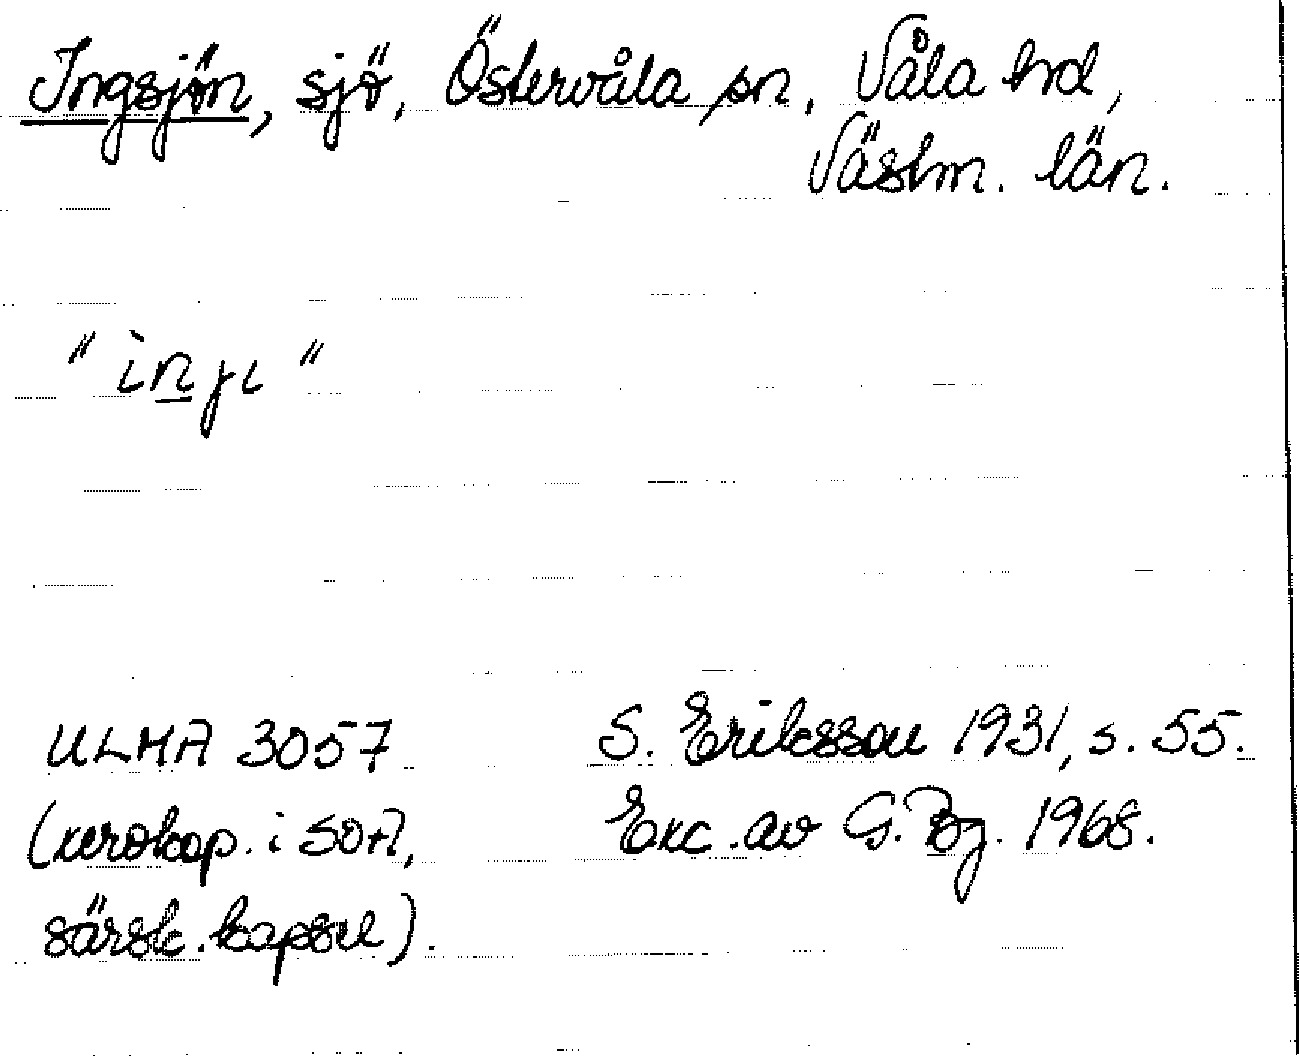 Ingsjön, sjö, Östervåla sn, Våla hd,
Västm. län.
" ìn̲ɟɩ "
ULMA 3057
(xerokop. i SOA,
särsk. kapsel).
S. Eriksson 1931, s. 55.
Exc. av G. Bg. 1968.